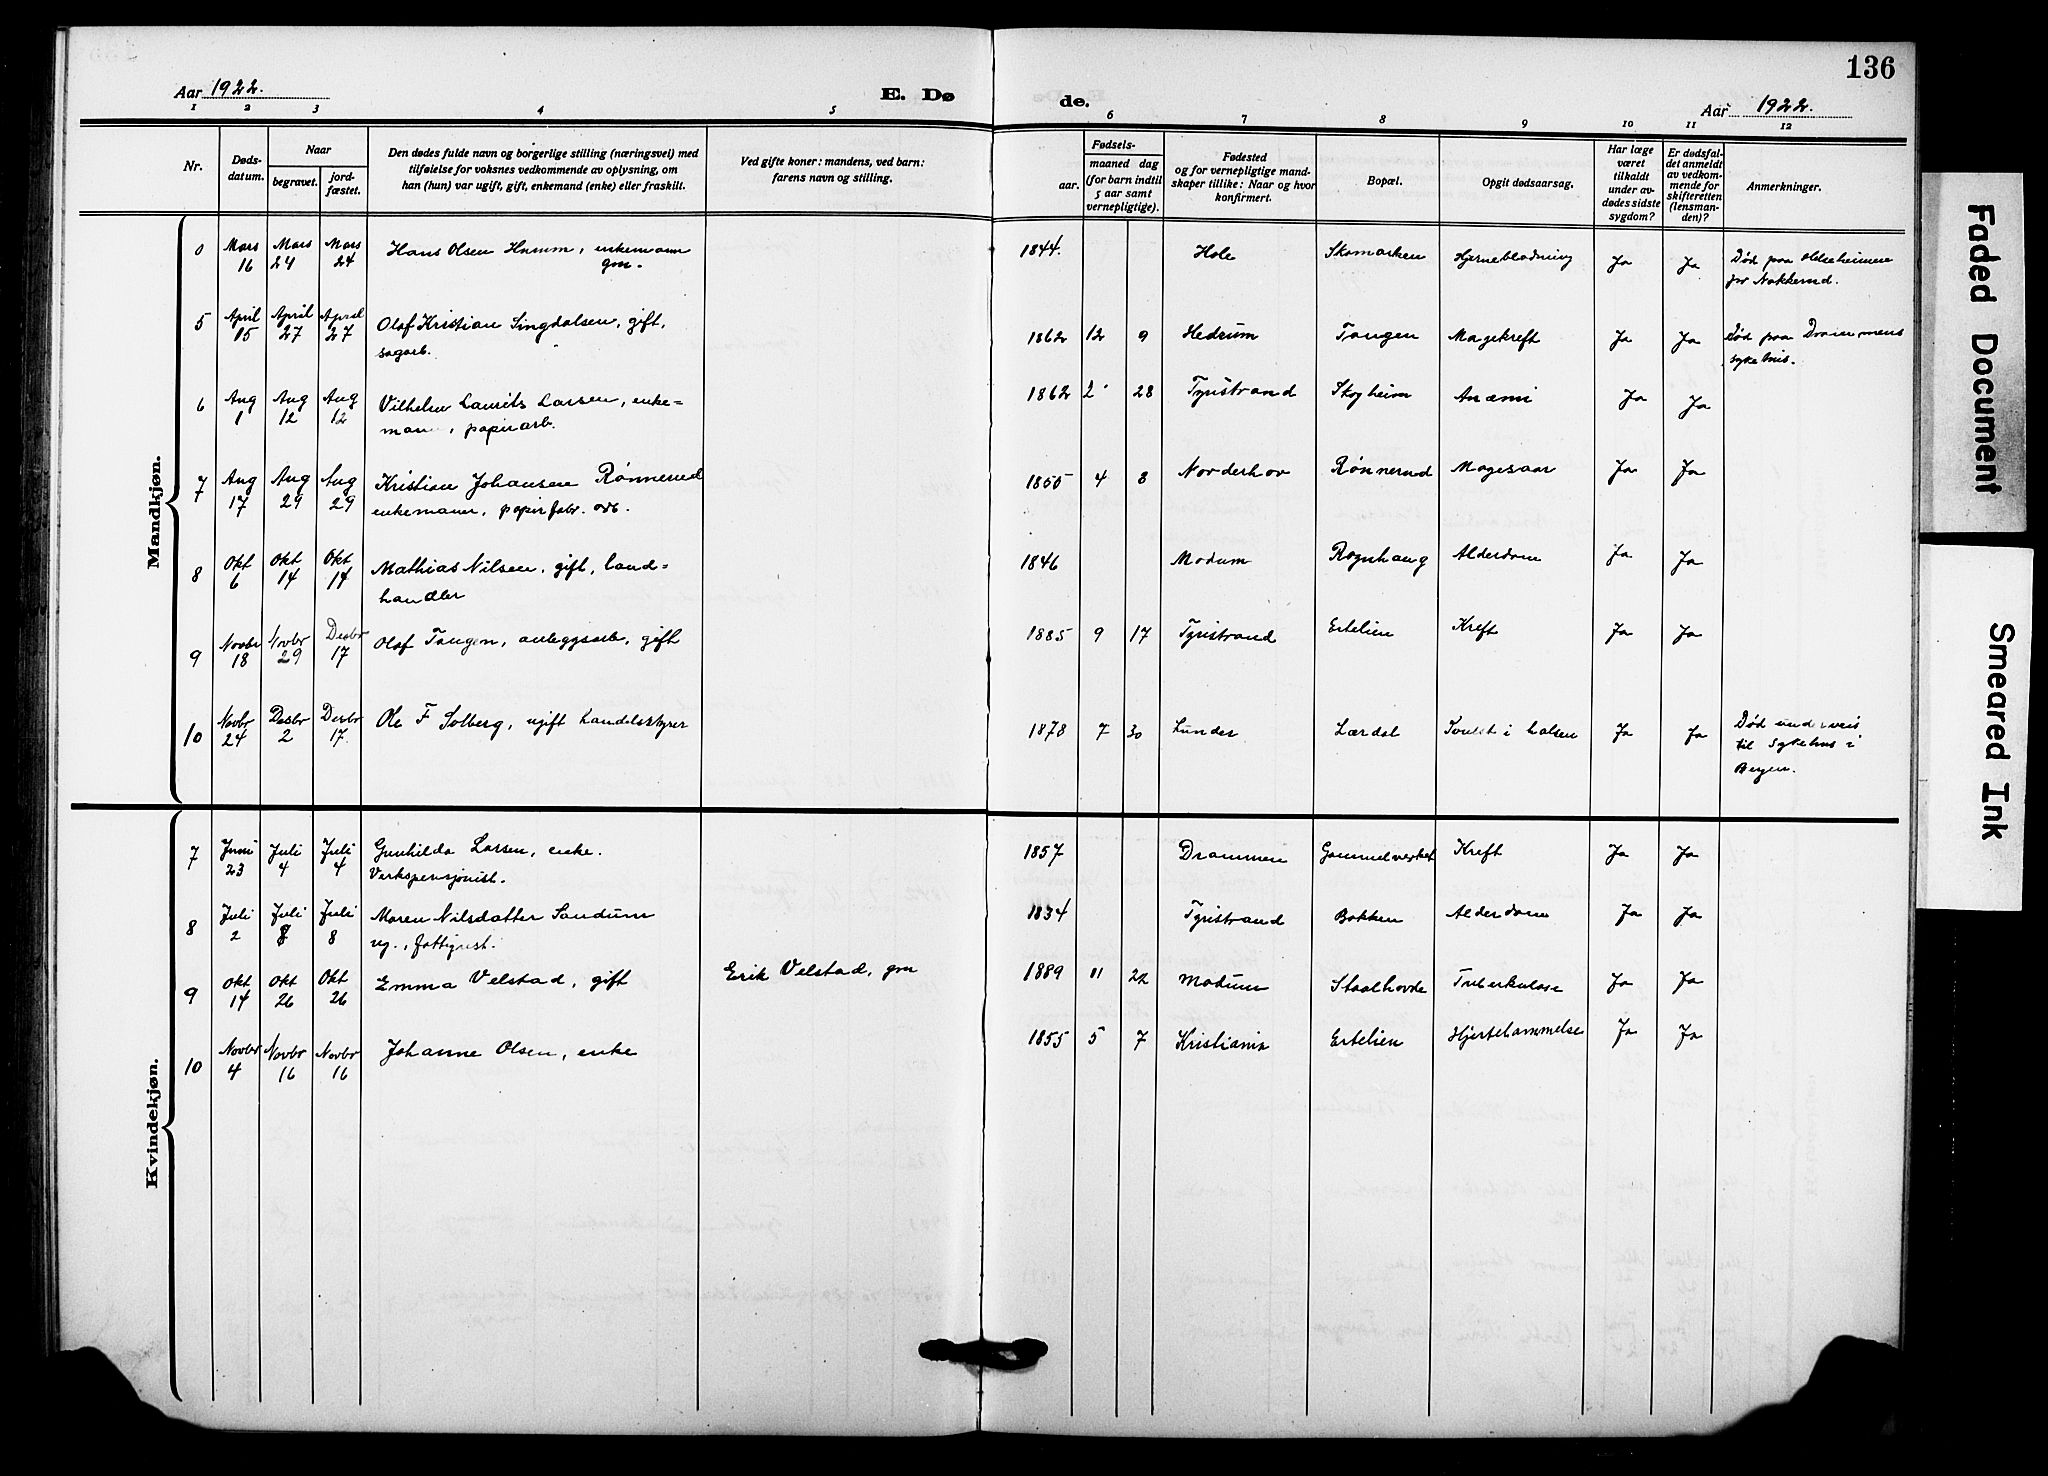 136
Aar 1922.
E. Dø
de.
Aar 1922.
1 2 3 4 5 6 7 8 9 10 11 12
Nr.
Døds-
datum.
Naar
begravet.
jord-
fæstet.
Den dødes fulde navn og borgerlige stilling (næringsvei) med
tilføielse for voksnes vedkommende av oplysning, om
han (hun) var ugift, gift, enkemand (enke) eller fraskilt.
Ved gifte koner: mandens, ved barn:
farens navn og stilling.
Fødsels-
aar.
maaned dag
(for barn indtil
5 aar samt
vernepligtige).
Fødested
og for vernepligtige mand-
skaper tillike: Naar og hvor
konfirmert.
Bopæl.
Opgit dødsaarsag.
Har læge
været
tilkaldt
under av-
dødes sidste
sygdom?
Er dødsfal-
det anmeldt
av vedkom-
mende for
skifteretten
(lensman-
den)?
Anmerkninger.
Mandkjøn.
0 Mars 16 Mars 24 Mars 24 Hans Olsen Hamm, enkemann
gm.
1844. Hole Skomarken Hjerneblødning Ja Ja Død paa Aldersheimen
for Nakkerud.
5 April 15 April 27 April 27 Olaf Kristian Lingdalsen, gift,
sagarb.
1862 12 9 Hedrum Tangen Magekreft Ja Ja Død paa Drammens
sykehus.
6 Aug 1 Aug 12 Aug 12 Vilhelm Laurits Larsen, enke=
mann, papirarb.
1862 2 28 Tyristrand Skogheim Anæmi Ja Ja
7 Aug 17 Aug 29 Aug 29 Kristian Johansen Rønnerud
enkemann, papirfabr. arb.
1850 4 8 Norderhov Rønnerud Magesaar Ja Ja
8 Okt 6 Okt 14 Okt 14 Mathias Nilsen, gift, land=
handler
1846 Modum Rognhaug Alderdom Ja Ja
9 Novbr 18 Novbr 29 Desbr 17 Olaf Tangen, anleggsarb, gift
1885 9 17 Tyristrand Ertelien Kreft Ja Ja
10 Novbr 24 Desbr 2 Desbr 17. Ole F Solberg, ugift handelsstyrer
1878 7 30 Lunder Lærdal i halsen Ja Ja Død underveis
til sykehus i
Bergen.
Kvindekjøn.
7 Juni 23 Juli 4 Juli 4 Gunhilda Larsen, enke.
Verkspensjonist.
1857 Drammen Gammelverket Kreft Ja Ja
8 Juli 2 Juli 8 Juli 8 Maren Nilsdatter Sandum
ug., fattigunst.
1834 Tyristrand Bakken Alderdom Ja Ja
9 Okt 14 Okt 26 Okt 26 Emma Velstad, gift Erik Velstad, gm
1889 11 22 Modum Staalhovde Tuberkulose Ja Ja
10 Novbr 4 Novbr 16 Novbr 16 Johanne Olsen, enke
1855 5 7 Kristiania Ertelien Hjertelammelse Ja Ja
Faded Document
Smeared Ink